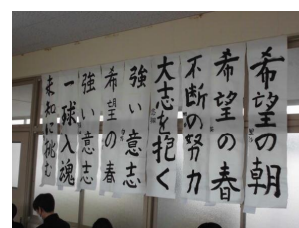 希望の朝
希望の春
不断の努力
大志を抱く
強い意志
希望の春
強い意志
一球入魂
未知に挑む